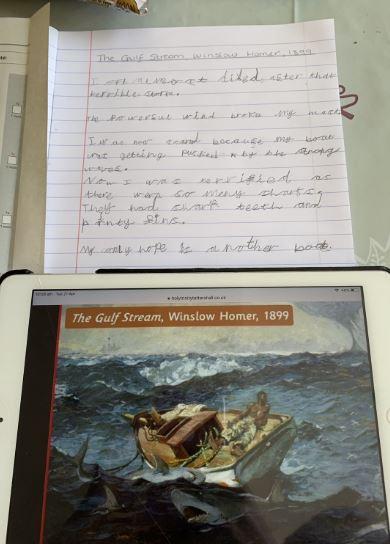 The Gulf Stream, Winslow Homer, 1899
I almost died after that
terrible storm.
The powerful wind broke my mast
I was now scared because my boat
was getting pushed by the strong
waves.
Now I was terrified as
there were so many sharks.
They had sharp teeth and
pointy fins.
My only hope is another boat.
holytrinitytattershall.co.uk
The Gulf Stream, Winslow Homer, 1899